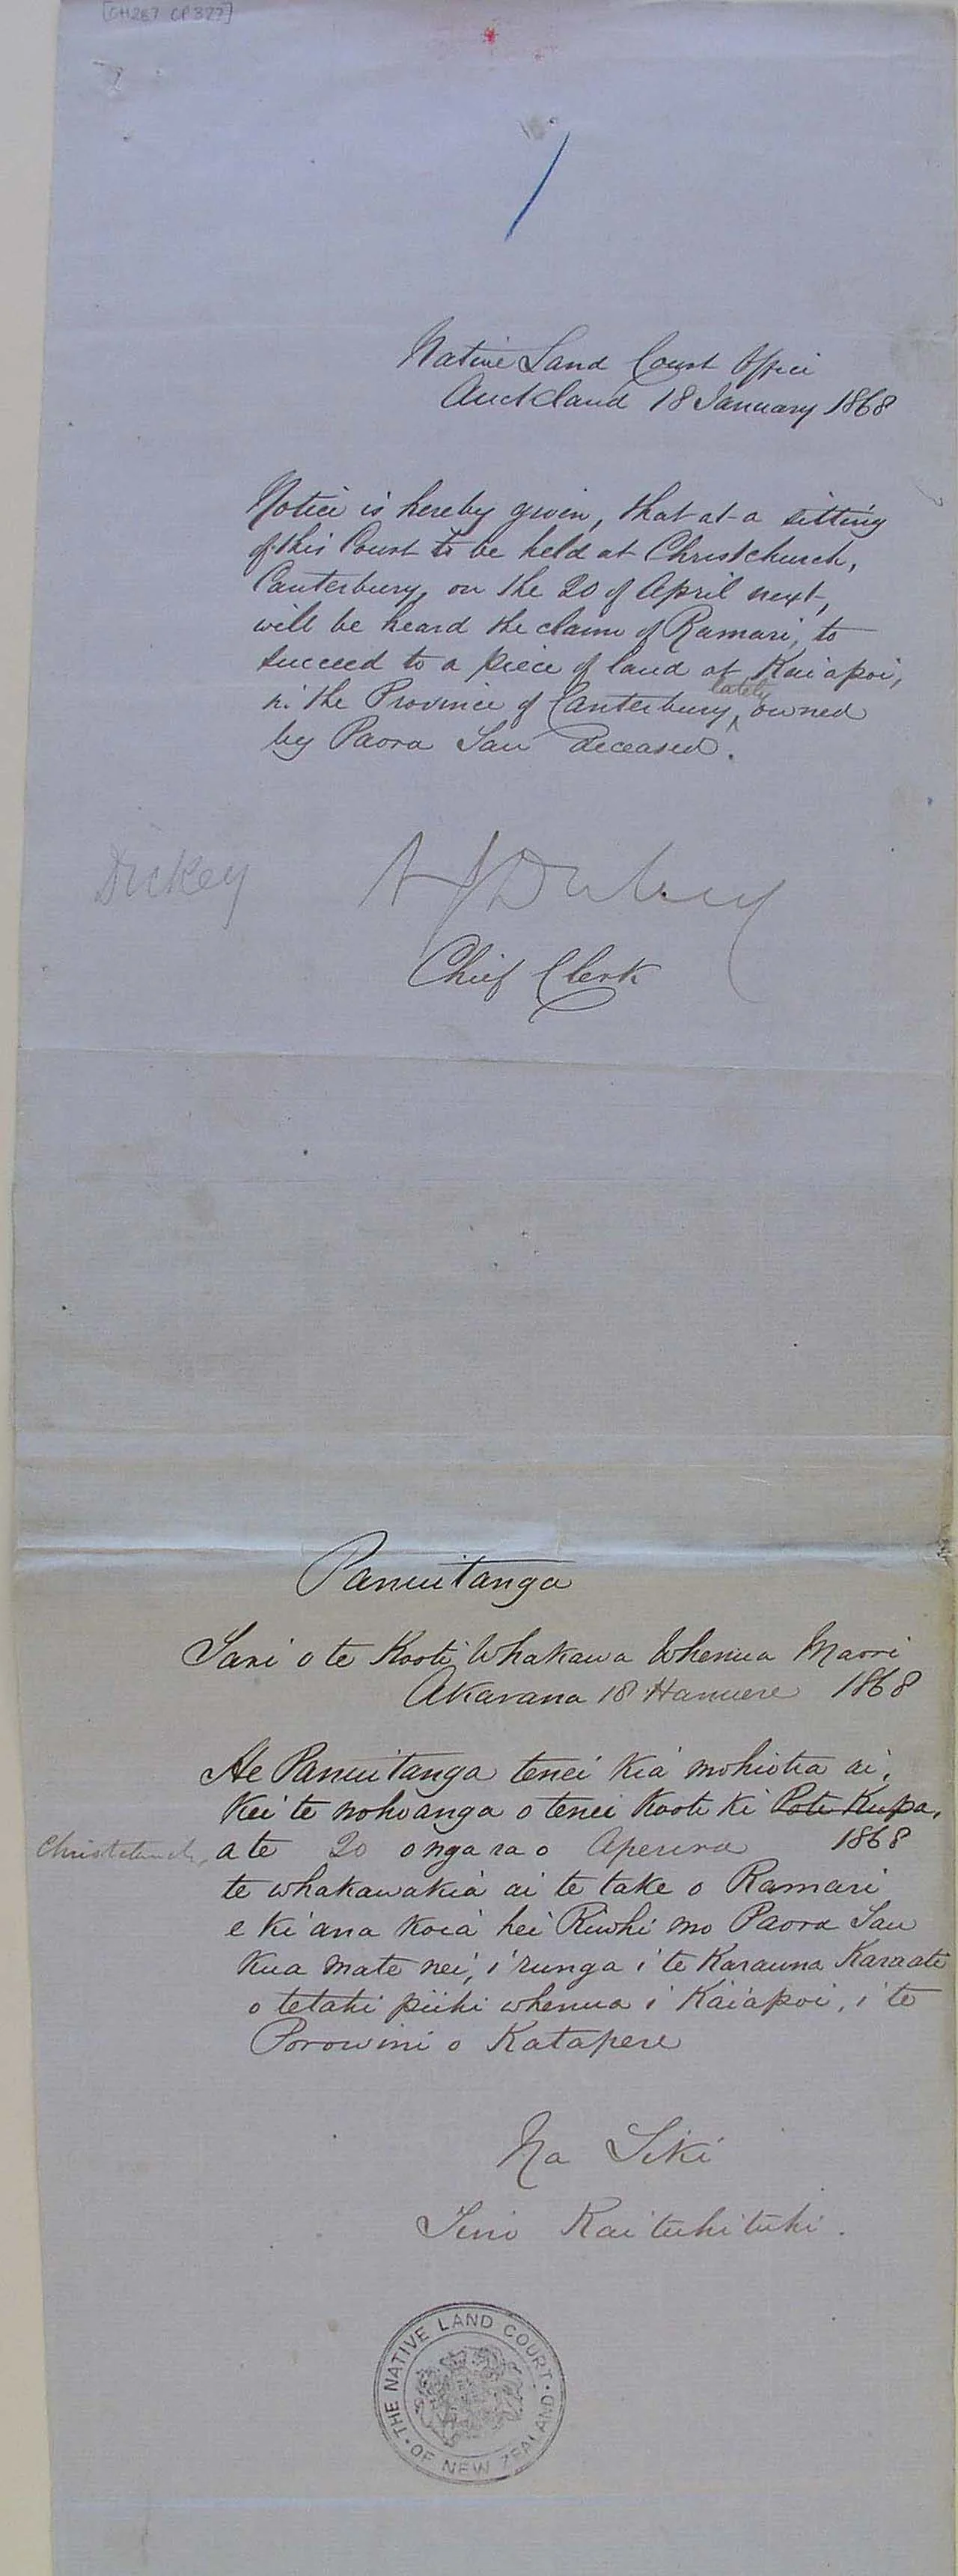 [CH287 CP327]
Native Land Court Office
Auckland 18 January 1868
Notice is hereby given, that at a sitting
of this Court to be held at Christchurch,
Canterbury, on the 20 of April next,
will be heard the claim of Ramari, to
succeed to a piece of land at Kaiapoi,
in the Province of Canterbury, lately owned
by Paora Tau deceased.
Dickey
A J Dickey
Chief Clerk
Panuitanga
Tari o te Kooti Whakawa Whenua Maori
Akarana 18 Hanuere 1868
He Panuitanga tenei kia mohiotia ai,
Kei te nohoanga o tenei Kooti ki Poti Kupa,
Christchurch, a te 20 o nga ra o Aperira 1868
te whakawakia ai te take o Ramari
e ki ana koia hei Riwhi mo Paora Tau
kua mate nei, i runga i te Karauna Karaati
o tetahi piihi whenua i Kaiapoi, i te
Porowini o Katapere
Na Tiki
Tino Kaituhituhi.
THE NATIVE LAND COURT OF NEW ZEALAND